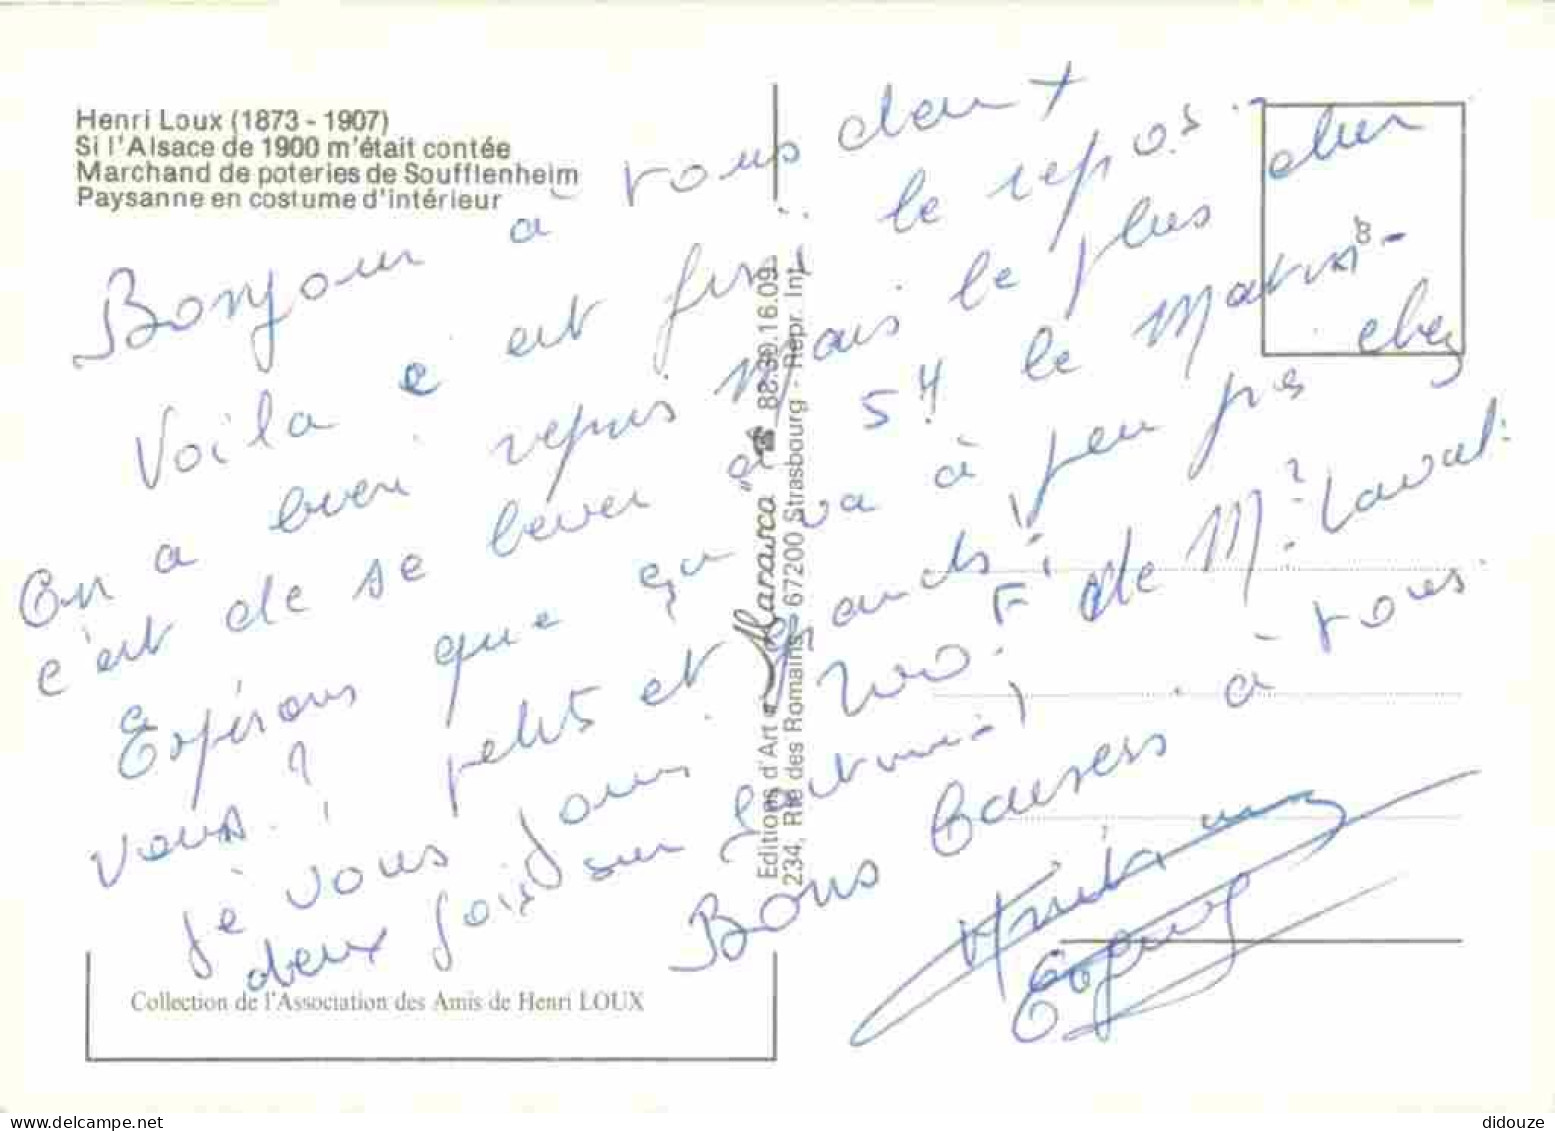 Henri Loux (1873 - 1907)
Si l'Alsace de 1900 m'était contée
Marchand de poteries de Soufflenheim
Paysanne en costume d'intérieur
Bonjour à vous deux +
Voila c'est fini le repos.
On a bien repris mais le plus dur
c'est de se lever à 5H le Matin -
Espérons que ça va à peu près chez
vous ! petits et grands !
je vous dois 200 F de Mr Laval.
deux fois sur
Bons Baisers à tous.
Editions d'Art Alsaska ☎ 88.30.16.09
234, Rte des Romains - 67200 Strasbourg - Repr. Int.
8
Collection de l'Association des Amis de Henri LOUX
delcampe.net
didouze